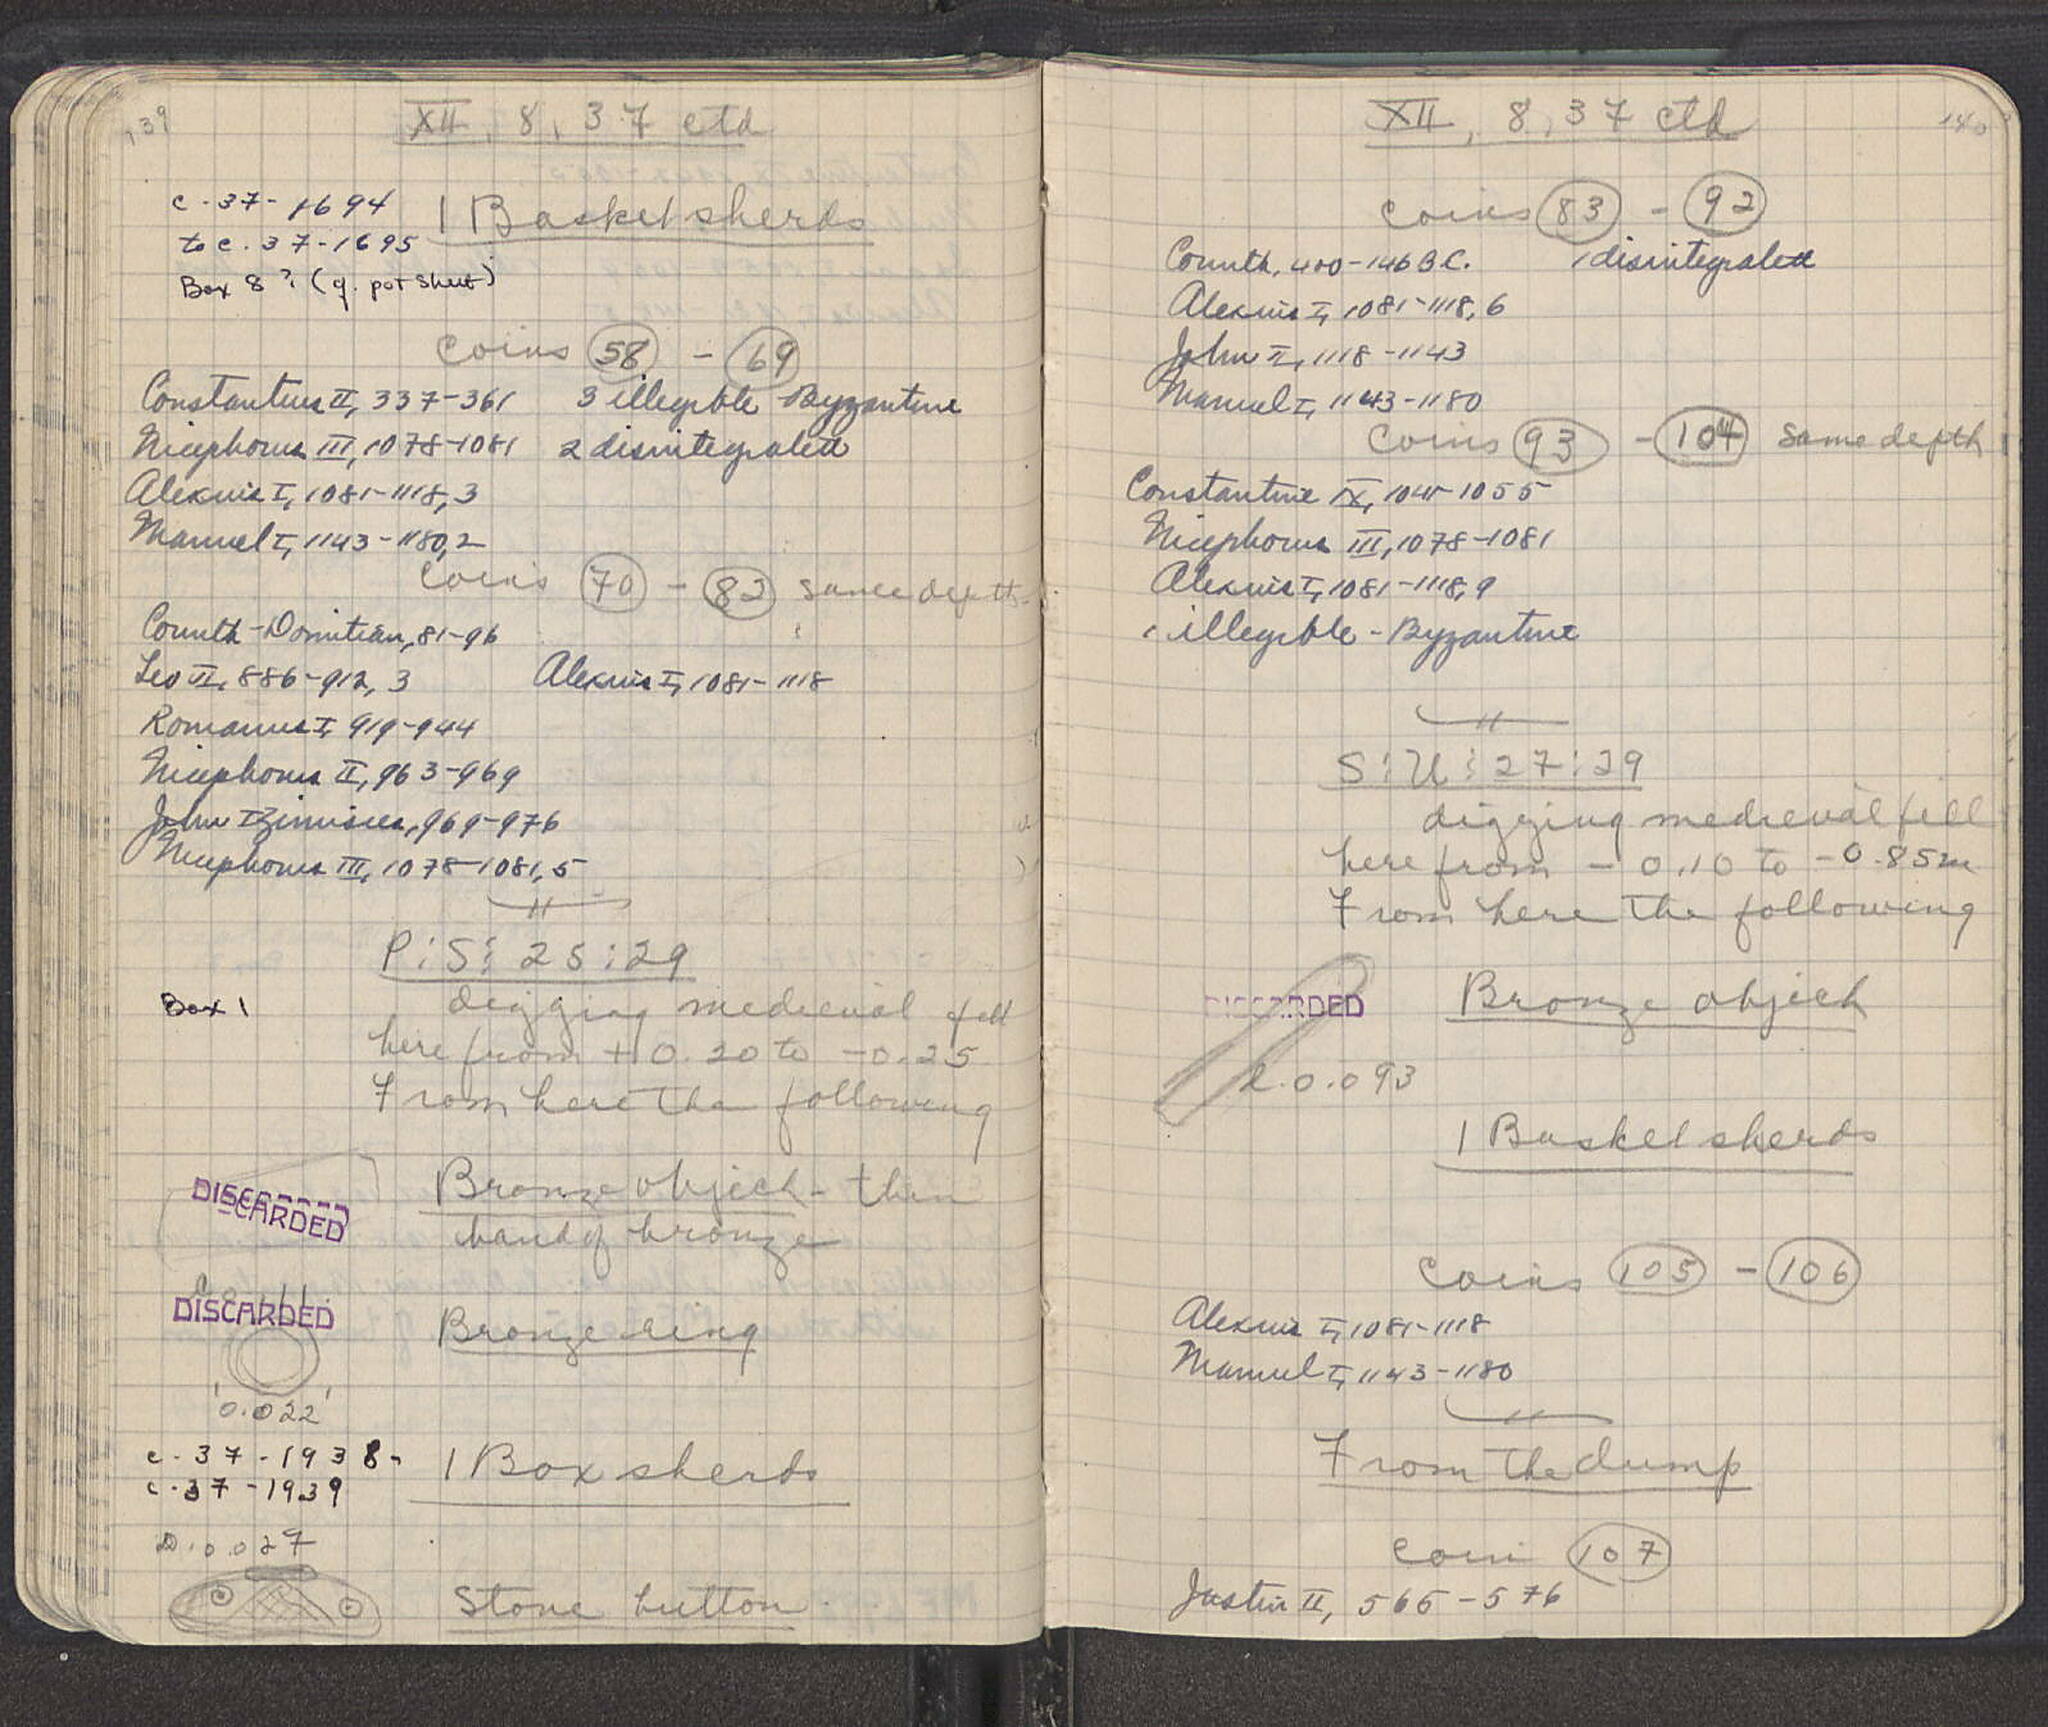 139
XII, 8, 37 ctd
c-37-1694
to c.37-1695
1 Basket sherds
Box 8? (q. pot sheet)
coins 58 - 69
Constantius II, 337-361 3 illegible Byzantine
Nicephorus III, 1078-1081 2 disintegrated
Alexius I, 1081-1118, 3
Manuel I, 1143-1180, 2
coins 70 - 82 same depth
Corinth-Domitian, 81-96
Leo VI, 886-912, 3 Alexius I, 1081-1118
Romanus I, 919-944
Nicephorus II, 963-969
John Tzimisces, 969-976
Nicephorus III, 1078-1081, 5
P:S: 25:29
Box 1
digging medieval fill
here from +0.20 to -0.25
From here the following
DISCARDED
DISCARDED
Bronze object - thin
band of bronze
DISCARDED
Bronze ring
0.022
c-37-1938-
c.37-1939
1 Box sherds
D.0.027
Stone button
140
XII, 8, 37 ctd
coins 83 - 92
Corinth, 400-146 B.C. 1 disintegrated
Alexius I, 1081-1118, 6
John II, 1118-1143
Manuel I, 1143-1180
coins 93 - 104 same depth
Constantine IX, 1041-1055
Nicephorus III, 1078-1081
Alexius I, 1081-1118, 9
1 illegible - Byzantine
S:U:27:29
digging medieval fill
here from -0.10 to -0.85m
From here the following
DISCARDED
Bronze object
L.0.093
1 Basket sherds
coins 105 - 106
Alexius I, 1081-1118
Manuel I, 1143-1180
From the dump
coin 107
Justin II, 565-576